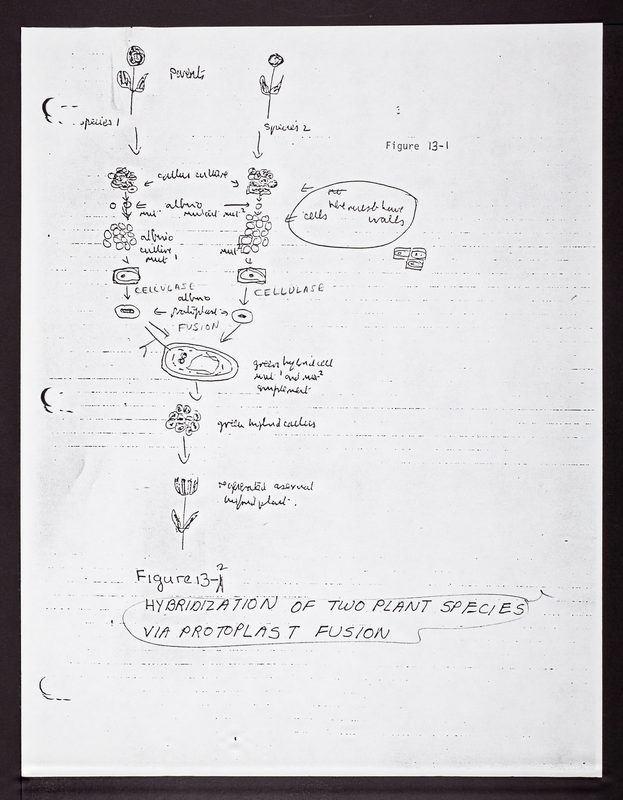 parents
species 1
Species 2
Figure 13-1
callus culture
albino
mutant mut²
mut¹
cells
these must have
walls
albino
culture
mut¹
mut²
CELLULASE
CELLULASE
albino
protoplasts
FUSION
green hybrid cell
mut¹ and mut²
complement
green hybrid callus
regenerated asexual
hybrid plant.
Figure 13-2
HYBRIDIZATION OF TWO PLANT SPECIES
VIA PROTOPLAST FUSION